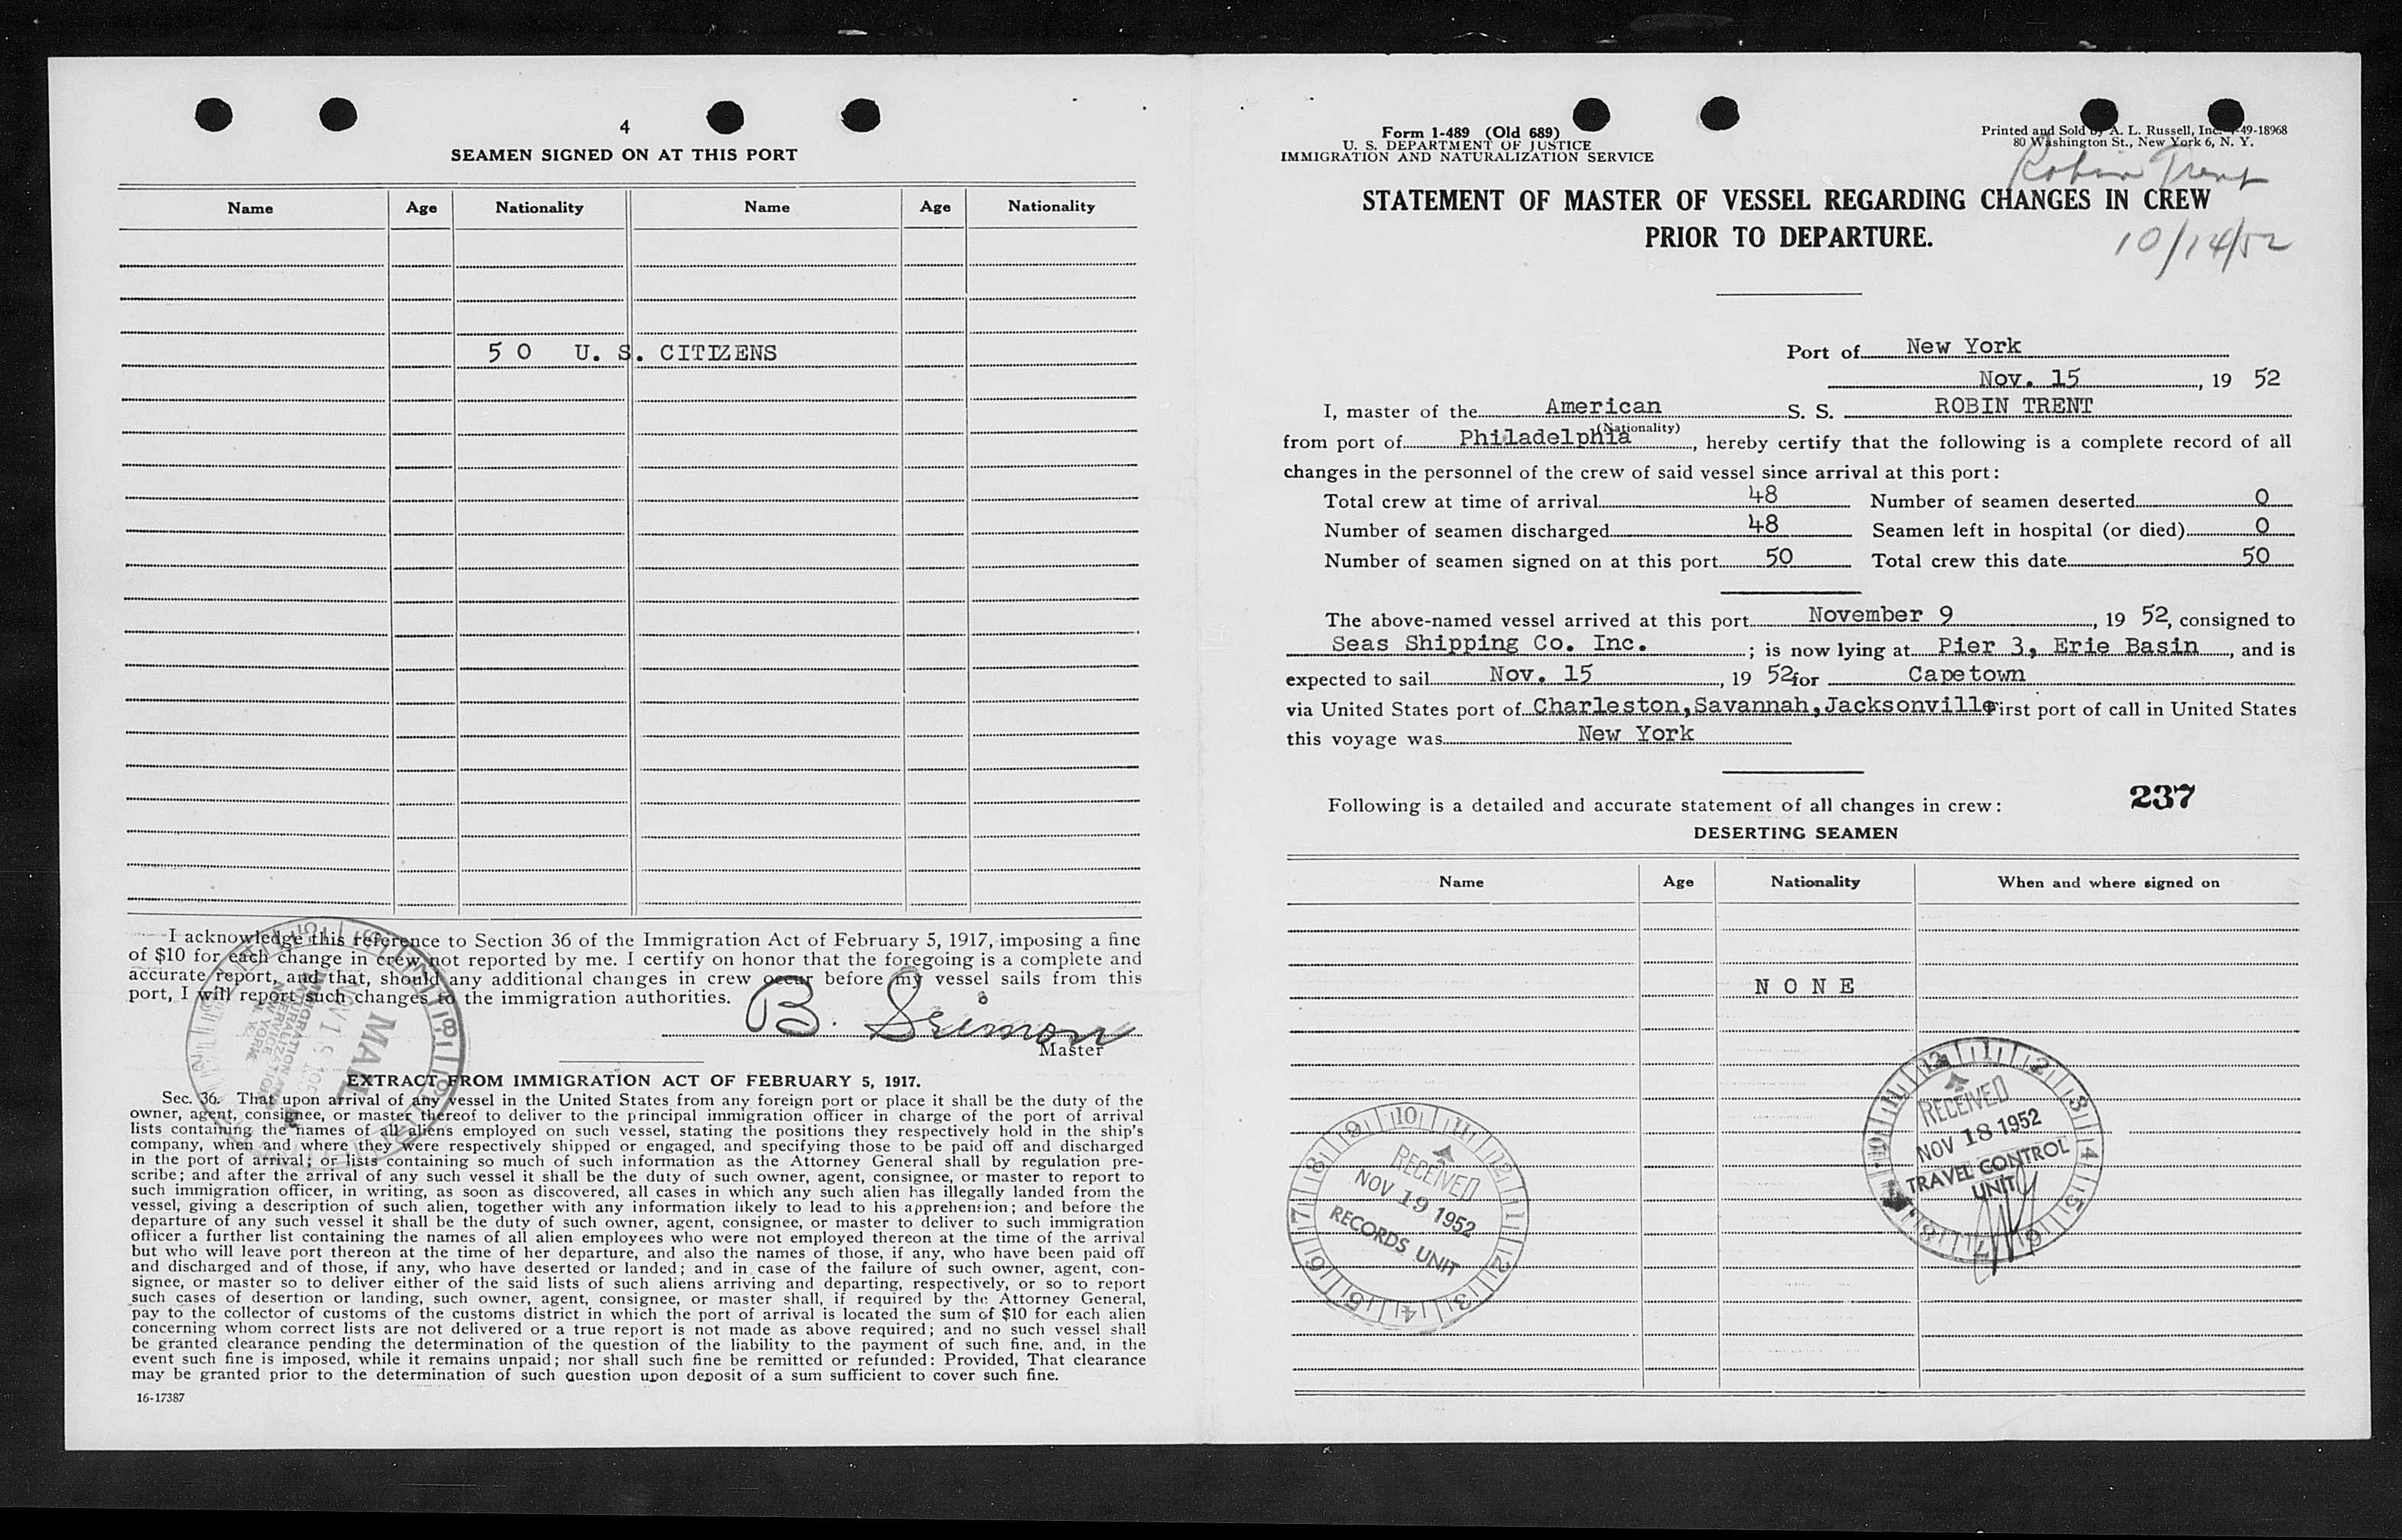 4
SEAMEN SIGNED ON AT THIS PORT
Name Age Nationality Name Age Nationality
5 0 U. S. CITIZENS
I acknowledge this reference to Section 36 of the Immigration Act of February 5, 1917, imposing a fine
of $10 for each change in crew not reported by me. I certify on honor that the foregoing is a complete and
accurate report, and that, should any additional changes in crew occur before my vessel sails from this
port, I will report such changes to the immigration authorities.
B.
Master
MAIL
EXTRACT FROM IMMIGRATION ACT OF FEBRUARY 5, 1917.
Sec. 36. That upon arrival of any vessel in the United States from any foreign port or place it shall be the duty of the
owner, agent, consignee, or master thereof to deliver to the principal immigration officer in charge of the port of arrival
lists containing the names of all aliens employed on such vessel, stating the positions they respectively hold in the ship's
company, when and where they were respectively shipped or engaged, and specifying those to be paid off and discharged
in the port of arrival; or lists containing so much of such information as the Attorney General shall by regulation pre-
scribe; and after the arrival of any such vessel it shall be the duty of such owner, agent, consignee, or master to report to
such immigration officer, in writing, as soon as discovered, all cases in which any such alien has illegally landed from the
vessel, giving a description of such alien, together with any information likely to lead to his apprehension; and before the
departure of any such vessel it shall be the duty of such owner, agent, consignee, or master to deliver to such immigration
officer a further list containing the names of all alien employees who were not employed thereon at the time of the arrival
but who will leave port thereon at the time of her departure, and also the names of those, if any, who have been paid off
and discharged and of those, if any, who have deserted or landed; and in case of the failure of such owner, agent, con-
signee, or master so to deliver either of the said lists of such aliens arriving and departing, respectively, or so to report
such cases of desertion or landing, such owner, agent, consignee, or master shall, if required by the Attorney General,
pay to the collector of customs of the customs district in which the port of arrival is located the sum of $10 for each alien
concerning whom correct lists are not delivered or a true report is not made as above required; and no such vessel shall
be granted clearance pending the determination of the question of the liability to the payment of such fine, and, in the
event such fine is imposed, while it remains unpaid; nor shall such fine be remitted or refunded: Provided, That clearance
may be granted prior to the determination of such question upon deposit of a sum sufficient to cover such fine.
16-17387
Form 1-489 (Old 689)
U. S. DEPARTMENT OF JUSTICE
IMMIGRATION AND NATURALIZATION SERVICE
Printed and Sold by A. L. Russell, Inc. -49-18968
80 Washington St., New York 6, N. Y.
Robin Trent
STATEMENT OF MASTER OF VESSEL REGARDING CHANGES IN CREW
PRIOR TO DEPARTURE.
10/14/52
Port of New York
Nov. 15, 19 52
I, master of the American S. S. ROBIN TRENT
(Nationality)
from port of Philadelphia, hereby certify that the following is a complete record of all
changes in the personnel of the crew of said vessel since arrival at this port:
Total crew at time of arrival 48 Number of seamen deserted 0
Number of seamen discharged 48 Seamen left in hospital (or died) 0
Number of seamen signed on at this port 50 Total crew this date 50
The above-named vessel arrived at this port November 9, 19 52, consigned to
Seas Shipping Co. Inc. ; is now lying at Pier 3, Erie Basin, and is
expected to sail Nov. 15, 19 52 for Capetown
via United States port of Charleston,Savannah,Jacksonville First port of call in United States
this voyage was New York
237
Following is a detailed and accurate statement of all changes in crew:
DESERTING SEAMEN
Name Age Nationality When and where signed on
N O N E
RECEIVED
NOV 18 1952
TRAVEL CONTROL
UNIT
RECEIVED
NOV 19 1952
RECORDS UNIT